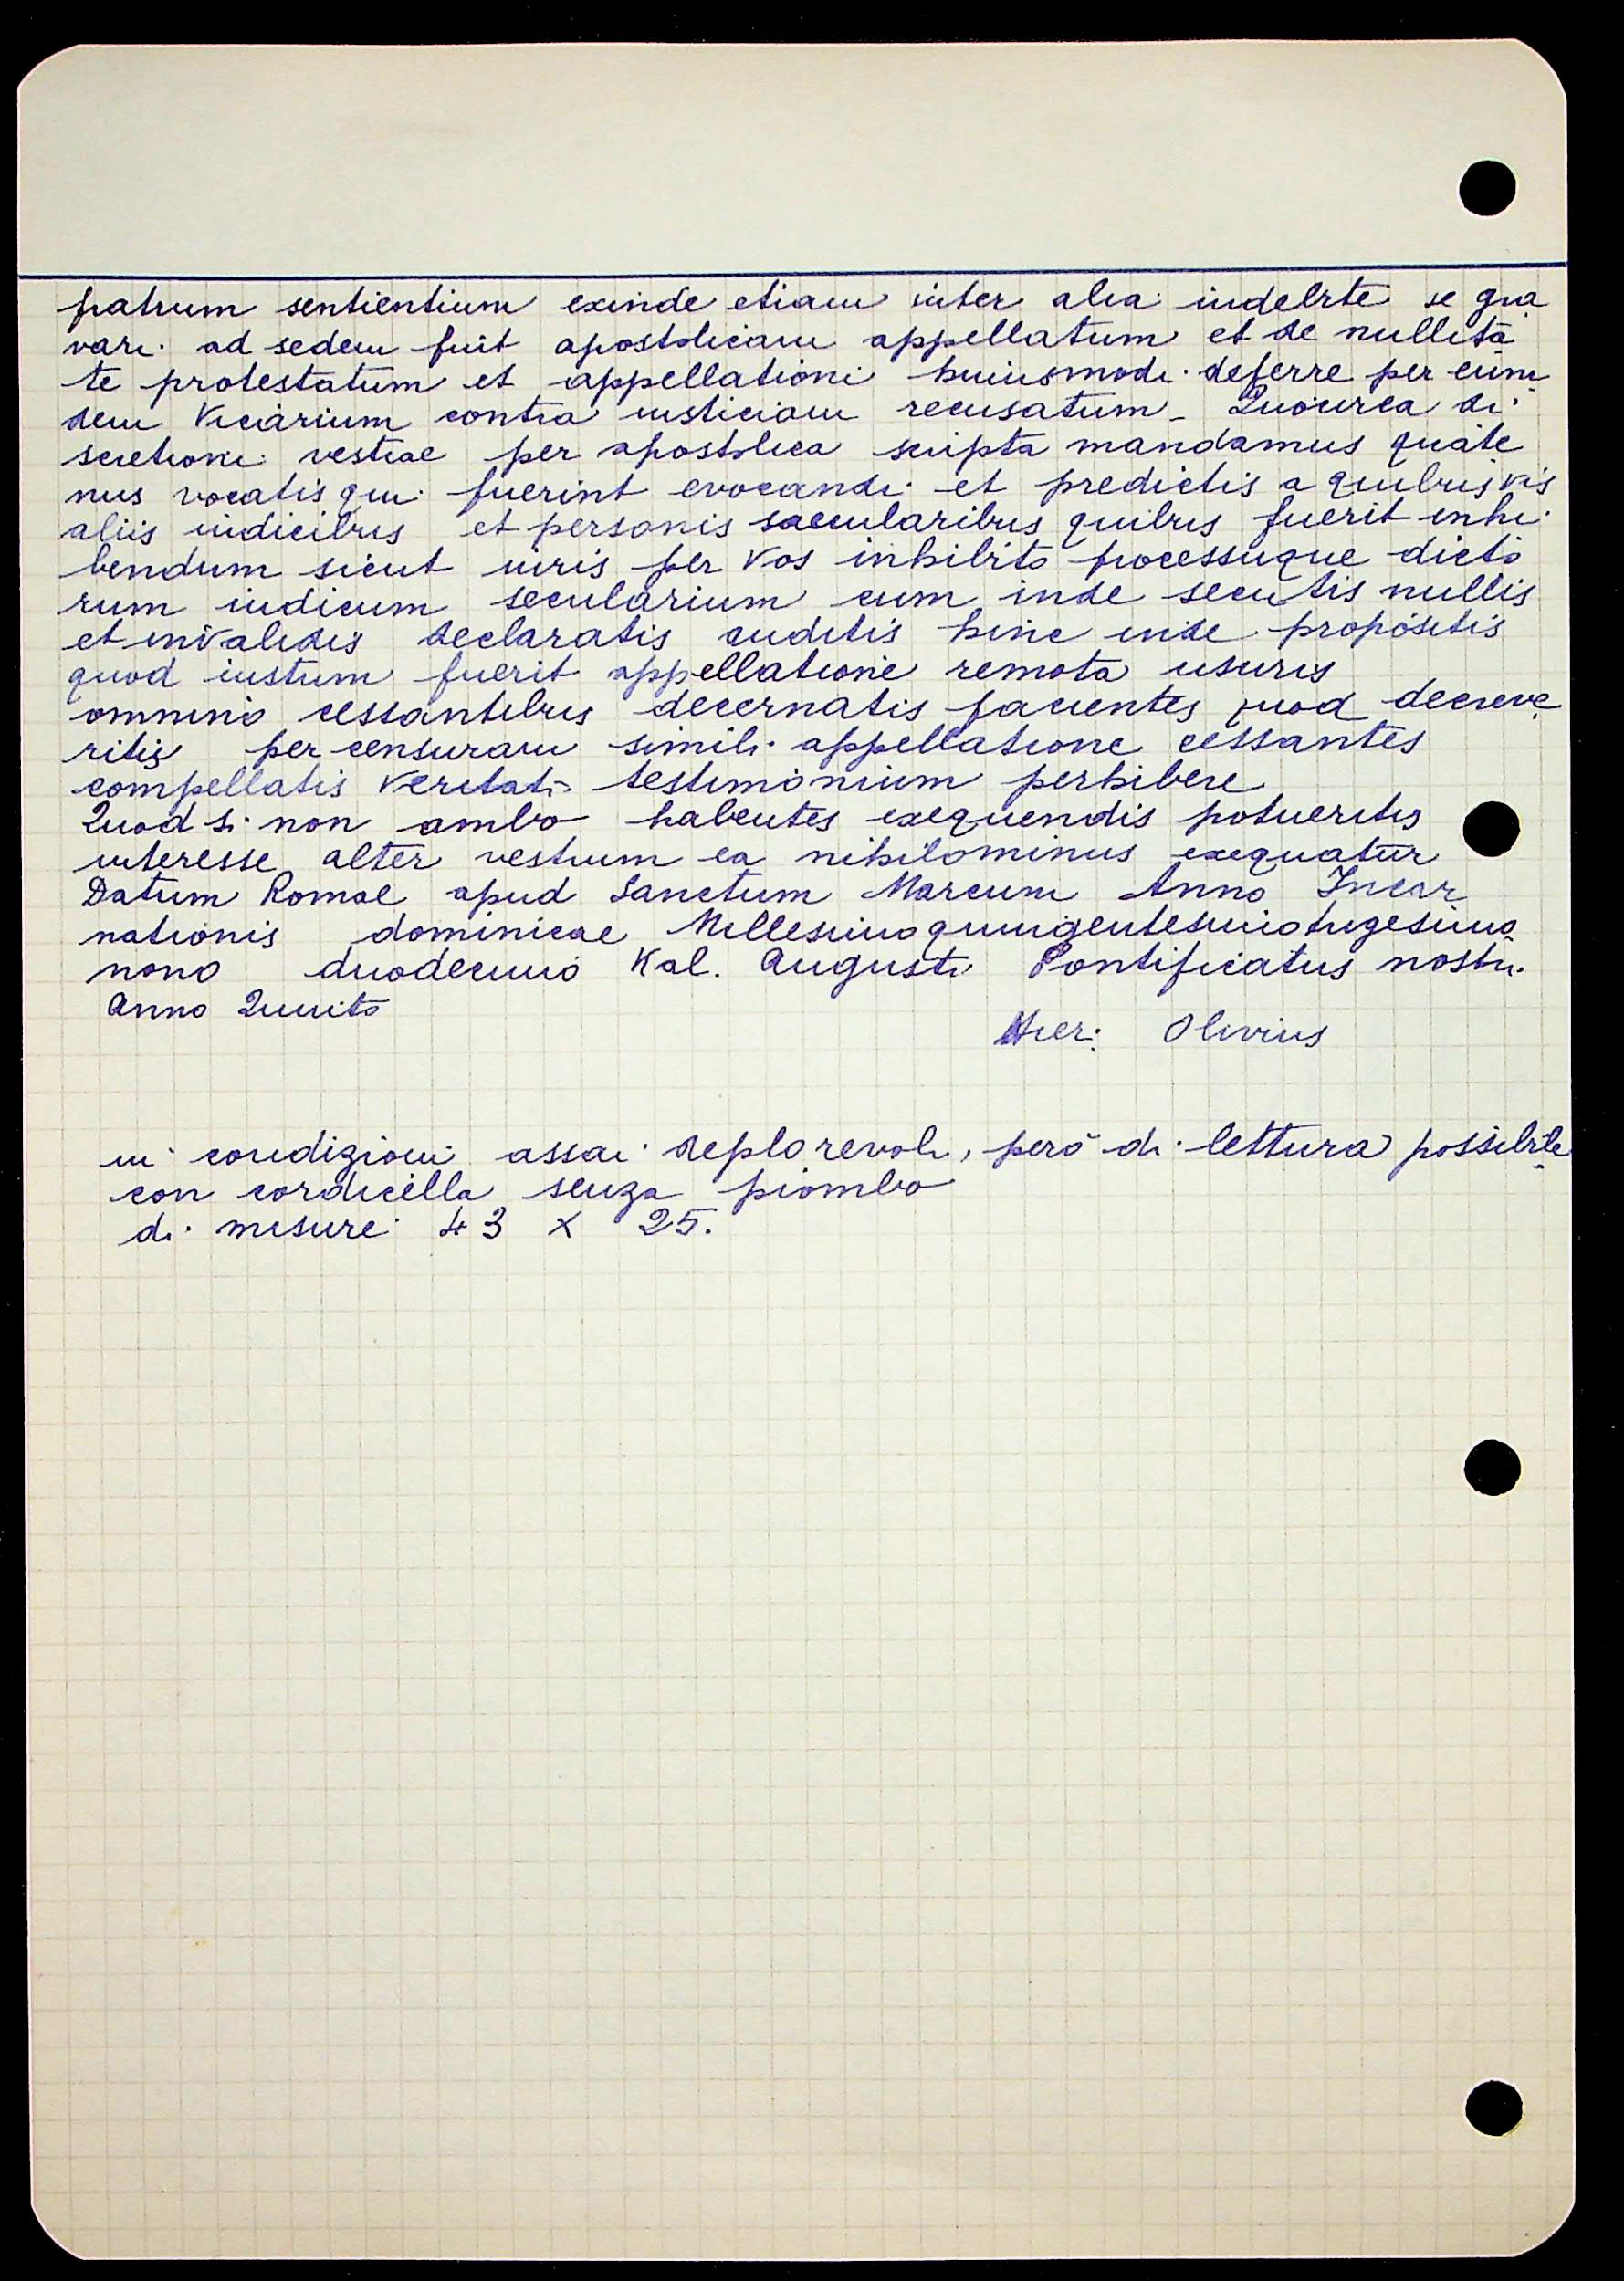 fratrum sentientium exinde etiam inter alia indebite se gra
vari ad sedem fuit apostolicam appellatum et de nullita
te protestatum et appellationi huiusmodi deferre per eum
dem Vicarium contra iusticiam recusatum - Quocirca di
scretioni vestrae per apostolica scripta mandamus quate
nus vocatis qui fuerint evocandi et predictis a quibusvis
aliis iudicibus et personis saecularibus quibus fuerit inhi
bendum sicut iuris per Vos inhibito processuque dicto
rum iudicum secularium cum inde secutis nullis
et invalidis declaratis auditis hinc inde propositis
quod iustum fuerit appellatione remota usuris
omnino cessantibus decernatis facientes quod decreve
ritis per censuram simili appellatione cessantes
compellatis veritati testimonium perhibere
Quod si non ambo habentes exequendis potueritis
interesse alter vestrum ea nihilominus exequatur
Datum Romae apud Sanctum Marcum Anno Incar
nationis dominicae Millesimo quingentesimo trigesimo
nono duodecimo Kal. Augusti Pontificatus nostri
Anno Quinto
Hier: Olivius
in condizioni assai deplorevoli, però di lettura possibile
con cordicella senza piombo
di misure 43 x 25.